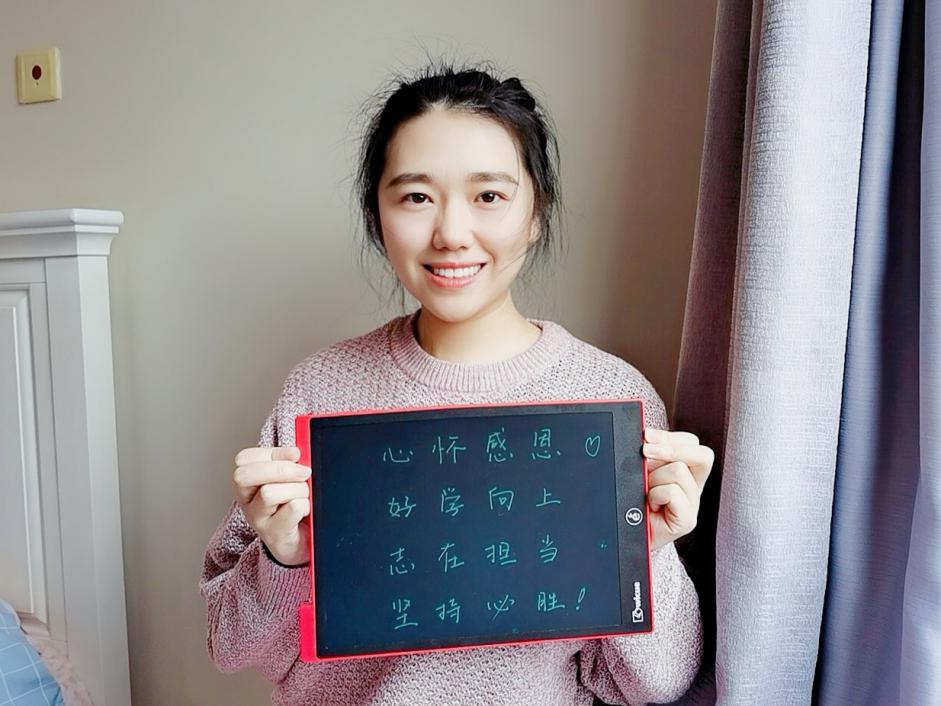 心怀感恩♡
好学向上
志在担当
坚持必胜!